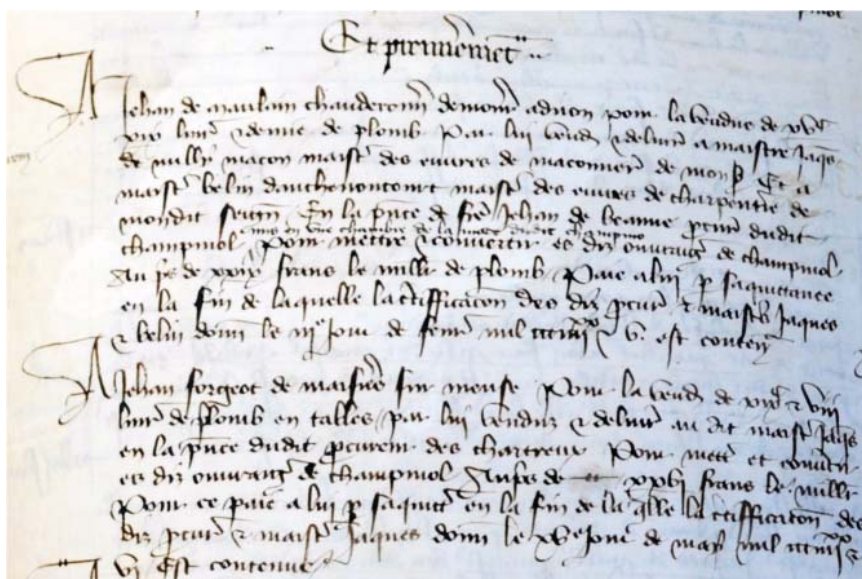 Et premierement
A Jehan de maulain chauderonnr demorr a dijon pour la vendue de xvc
livr & demie de plomb Par lui vendu & delivre a maistre Jaqs
de nully macon maistr des euvres de maconnerie de mons Et a
maistr belin danchenoncourt maistr des euvres de charpenterie de
mondit seigr En la pnce de frer Jehan de beaune pcur dudit
mis en une chambre de la dudit champmol
champmol Pour mettre & convertir es diz ouvraiges de champmol
Au fs de frans le millr de plomb Paie a lui p sa quittance
en la fin de laquelle la ctifficacon des diz pcur & maistrs Jaques
& belin donn le iije jour de fevrr mil ccciiiixx & v. est contenu
A Jehan forgeot de maisieres sur meuse Pour la vende de & viii
livr de plomb en talles par lui venduz & delivre au dit maistr Jaqs
en la pnce dudit pcureur des chartreux Pour mettr et convtir
es diz ouvraig de champmol Au fs de xxvj frans le millr
Pour ce paie a lui p sa quittce en la fin de la qlle la ctifficacon des
diz pcur & maistr Jaques donn le xve jour de may mil ccciiiixx &
vi est contenue